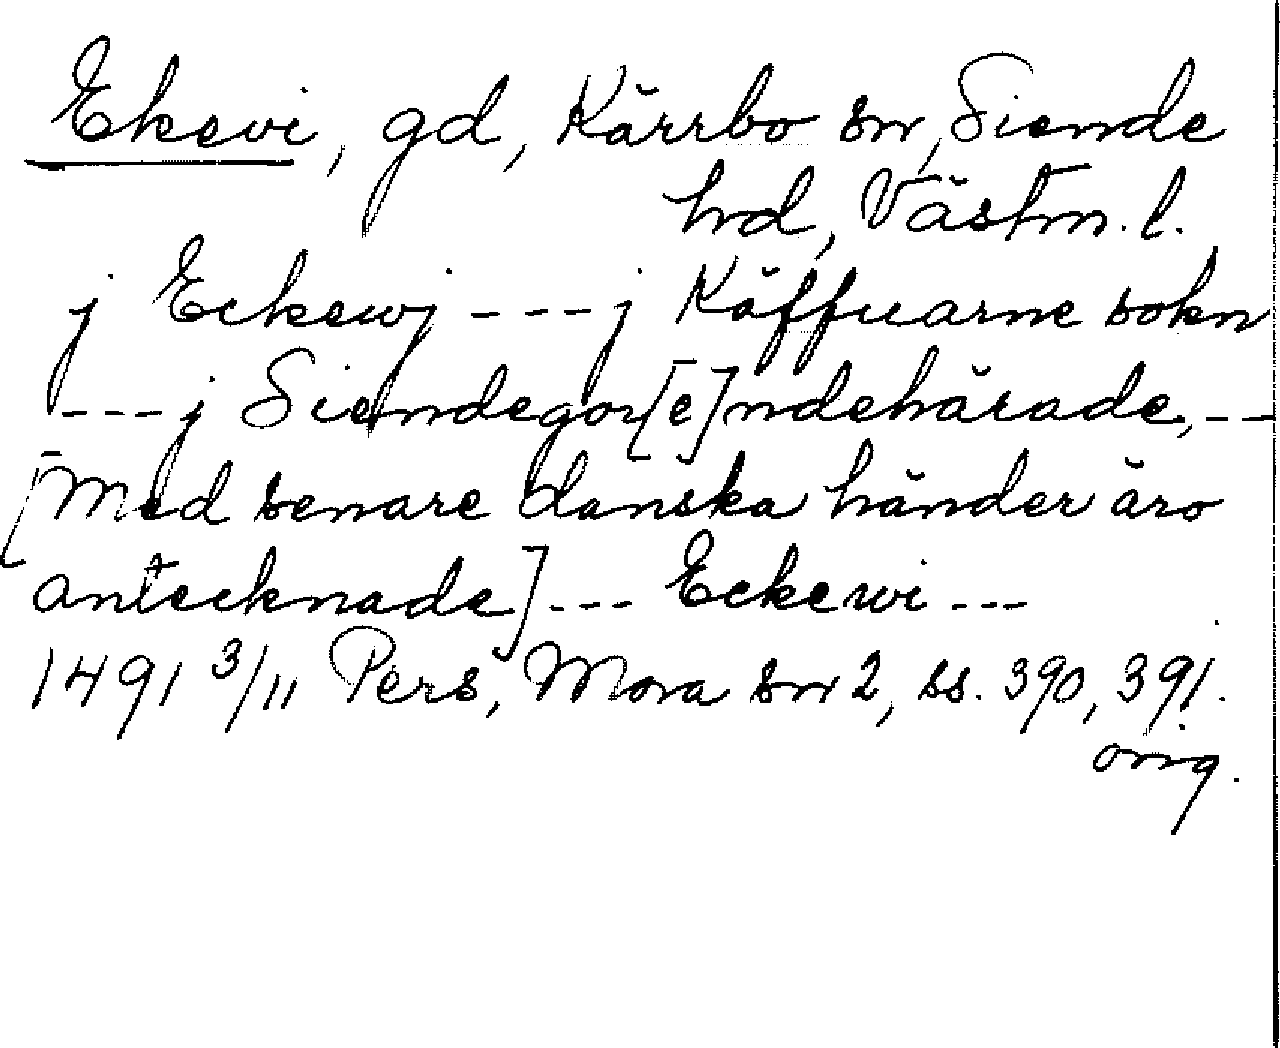 Ekevi, gd, Kärrbo sn, Siende
hd, Västm. l.
j Eckewj --- j Käffuarne sokn
--- j Siendegon[e]ndehärade, --
[Med senare danska händer äro
antecknade] --- Eckewi ---
1491 3/11 Pers, Mora sn 2, ss. 390, 391.
orig.